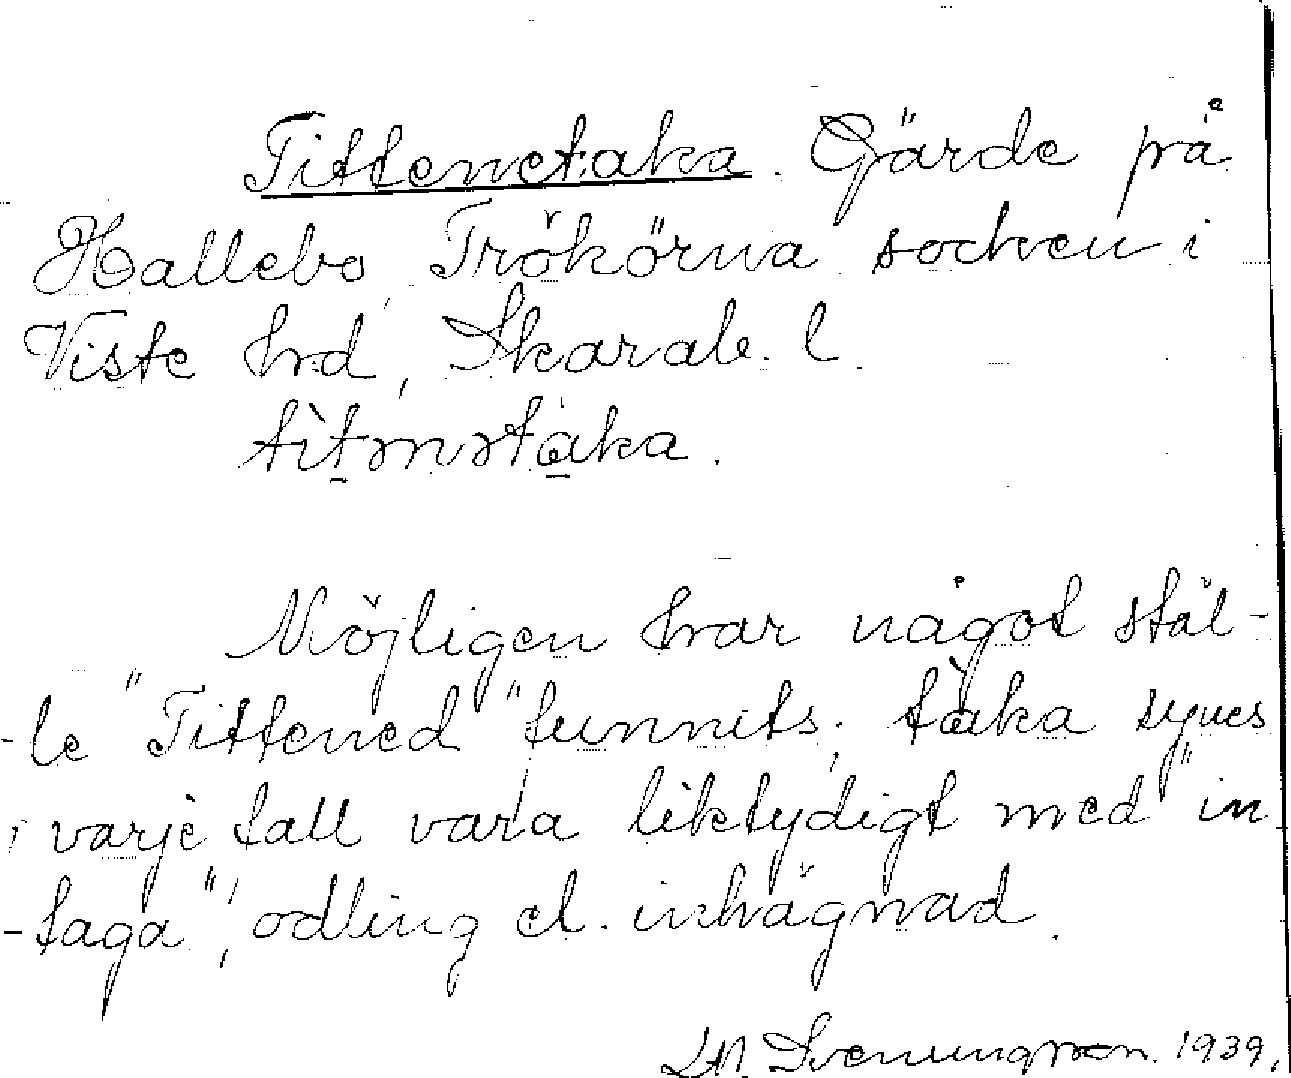 Tittenetaka. Gärde på
Hallebo, Trökörna socken i
Viste hrd, Skarab. l.
Möjligen har något stäl-
-le "Tittened" funnits; tåka synes
i varje fall vara liktydigt med "in-
-taga", odling el. inhägnad.
LM. Svenungsson. 1939.